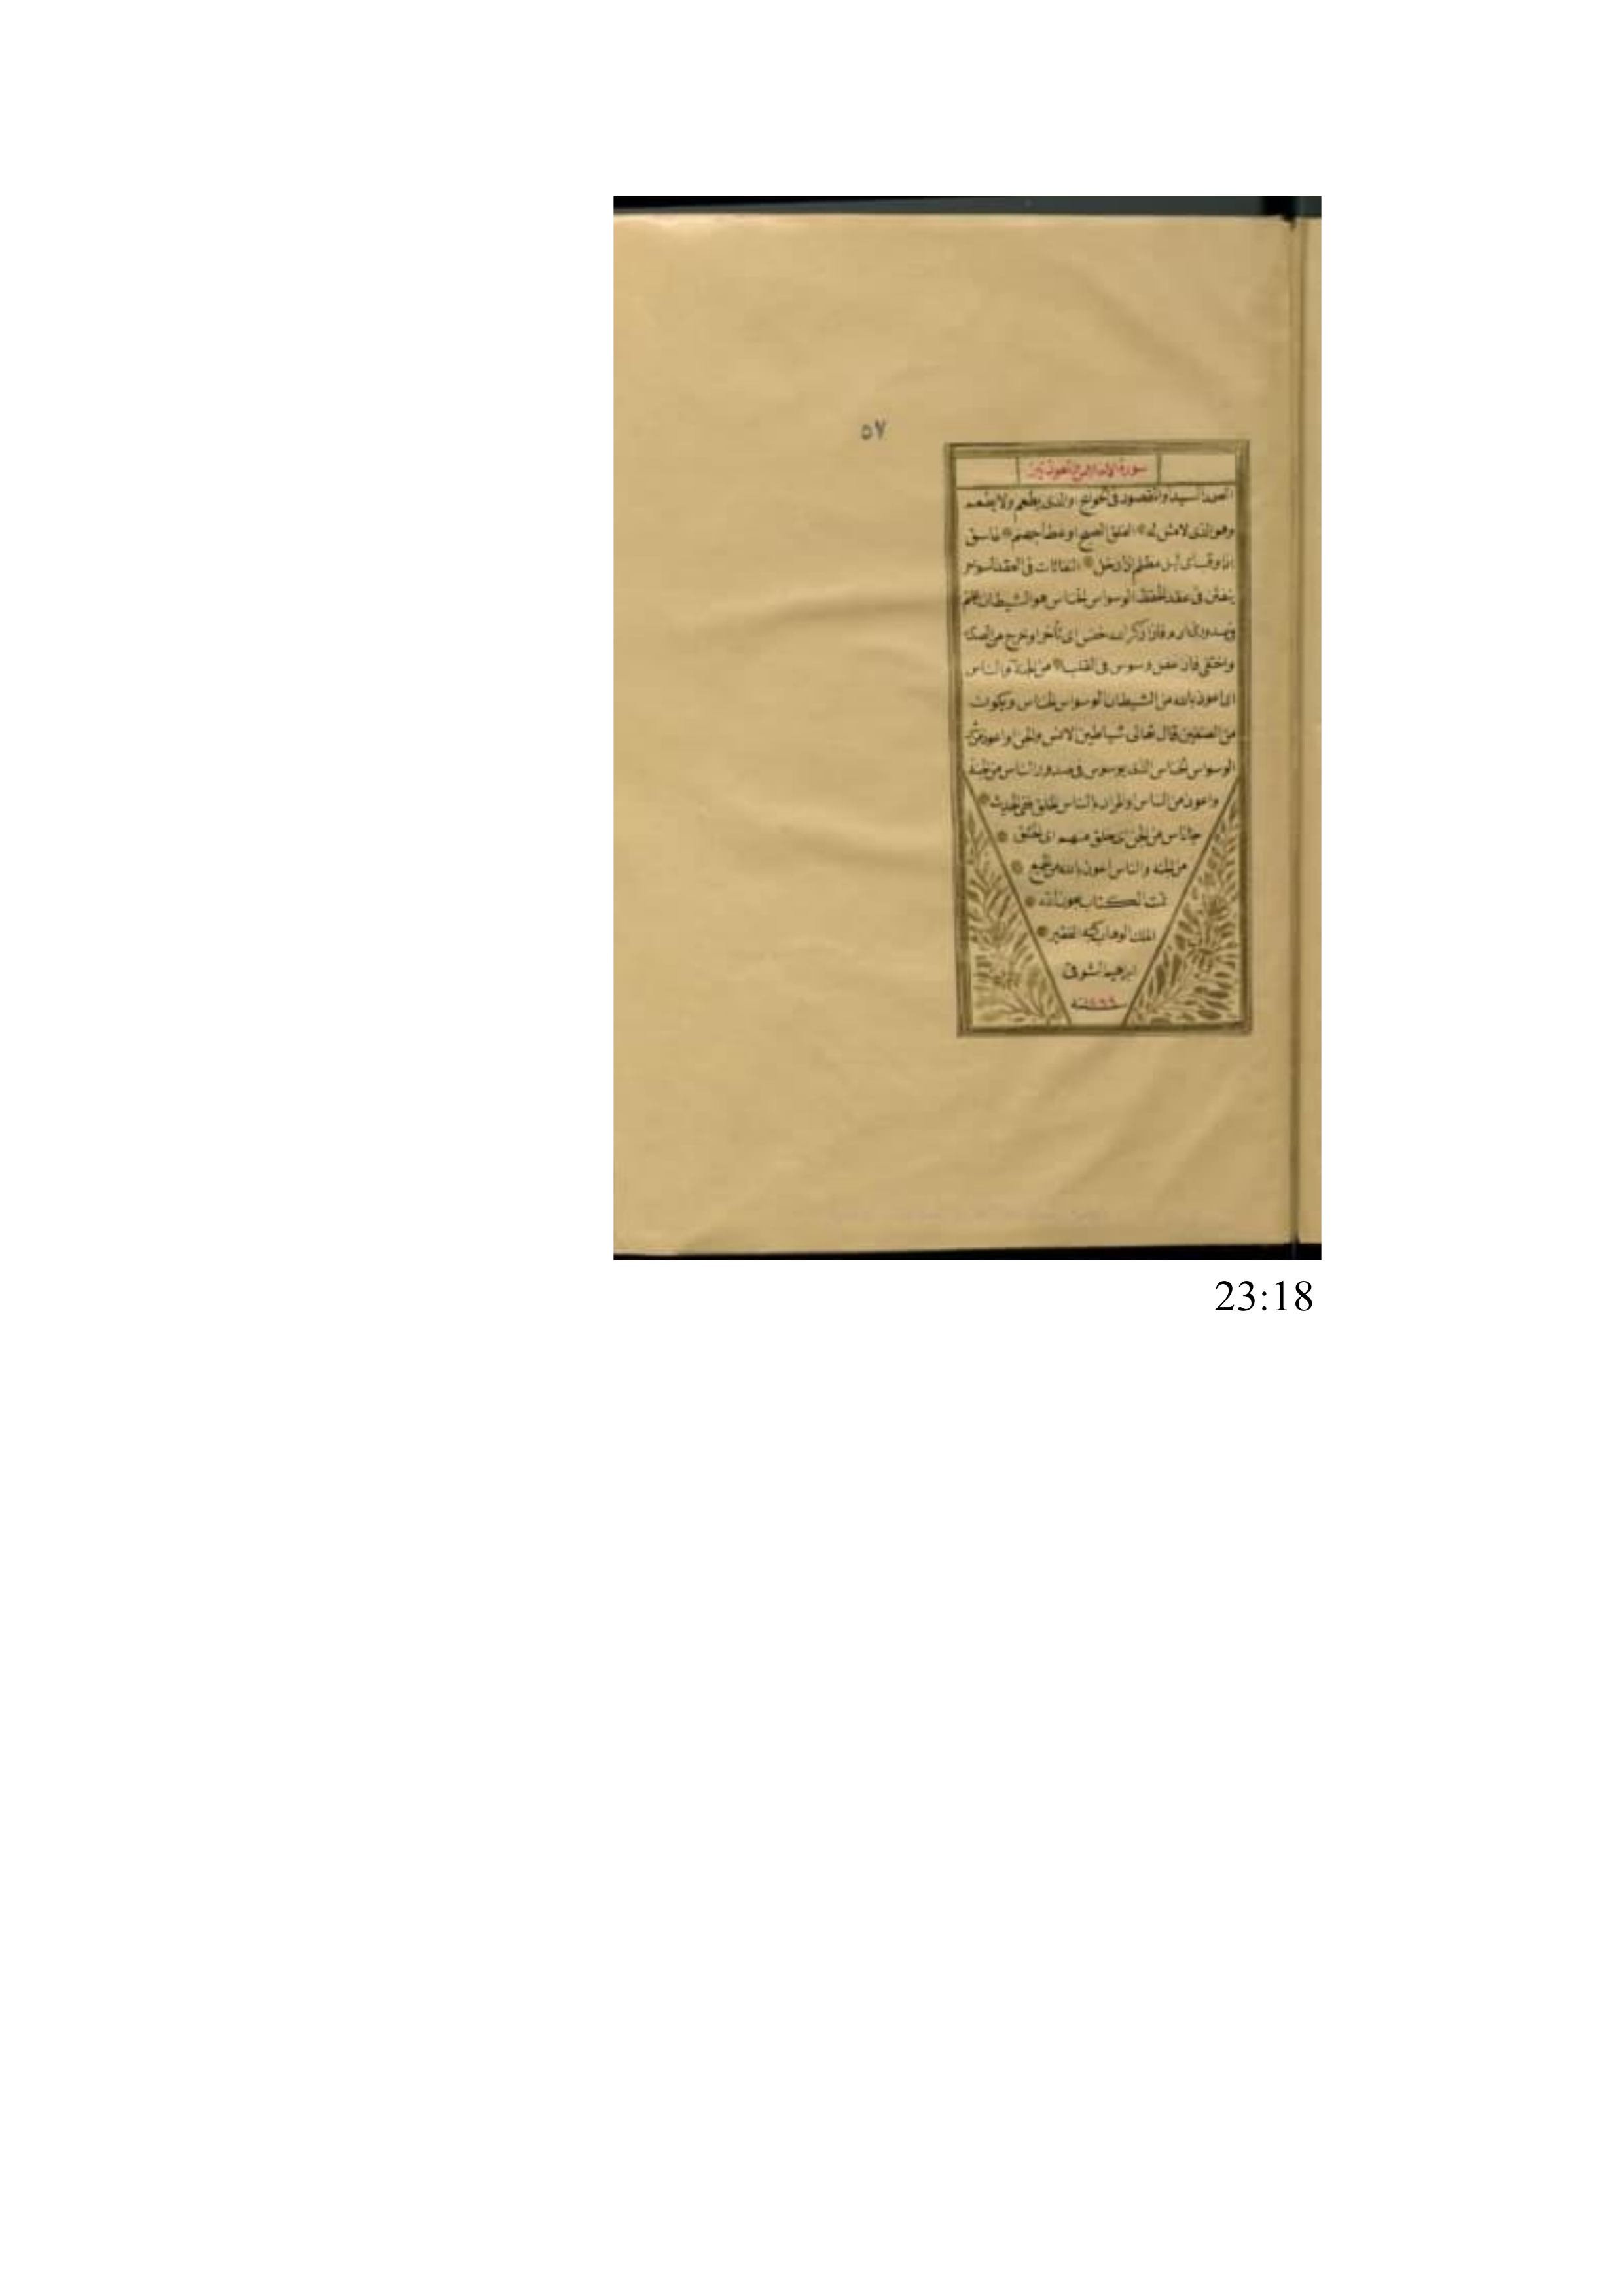 ٥٧
سورة الاخلاص المعوذتين
الصمد السيد او المقصود فى الحوائج او الذى يطعم ولا يطعم
وهو الذى لا مثل له الفلق الصبح او غطا جهنم غاسق
اذا وقب اى ليل مظلم اذا دخل النفاثات فى العقد السواحر
ينفثن فى عقد الوسواس الخناس هو الشيطان
فاذا ذكر الله خنس اى تأخر او خرج من
واختفى فان غفل وسوس فى القلب من الجنة والناس
اى اعوذ بالله من الشيطان الوسواس الخناس ويكون
من الصنفين قال تعالى شياطين الانس والجن او اعوذ من شر
الوسواس الخناس الذى يوسوس فى صدور الناس من الجنة
واعوذ من الناس او المراد بالناس الخلق ففى الحديث
جا ناس من الجن اى خلق منهم اى الخلق
من الجنة والناس اعوذ بالله من الجميع
تمت الكتاب بعون الله
الملك الوهاب كتبه الفقير
ابراهيم الشوقى
سنة
23:18